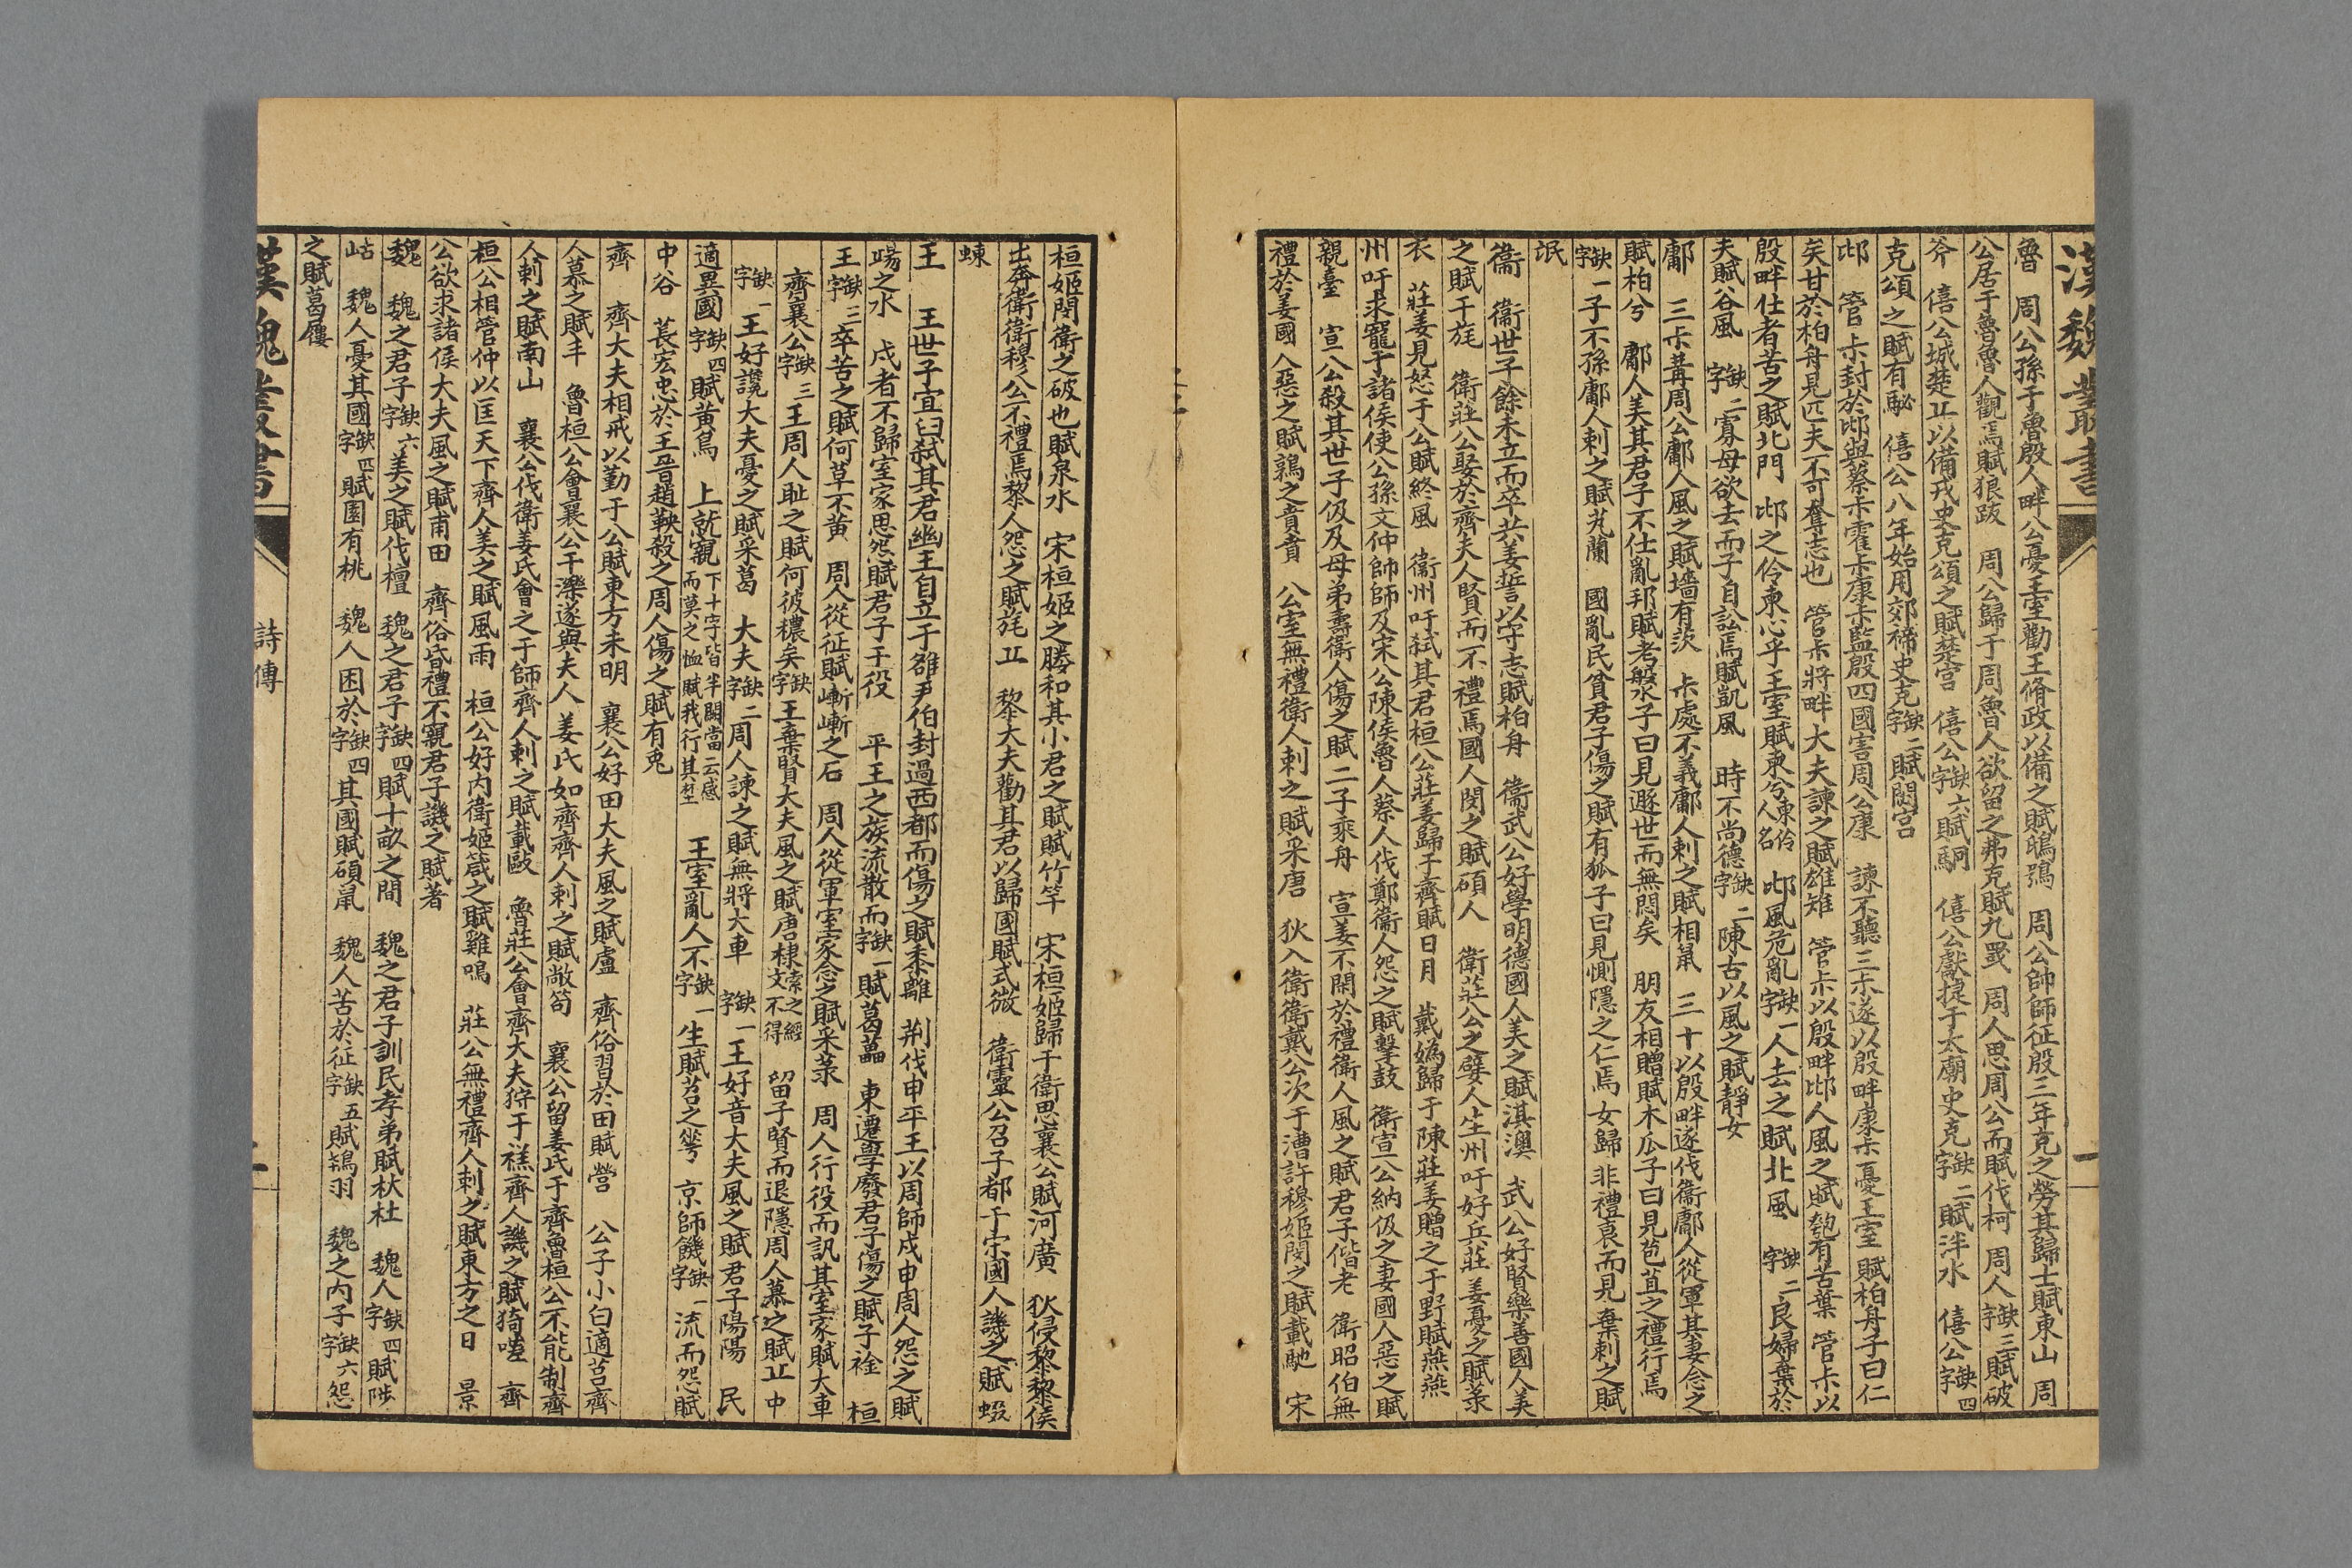 漢魏叢書
一
魯　周公孫于魯殷人畔公憂王室勸王脩政以備之賦鴟鴞　周公帥師征殷三年克之勞其歸士賦東山　周
公居于魯魯人觀焉賦狼跋　周公歸于周魯人欲留之弗克賦九罭　周人思周公而賦伐柯　周人缺三字賦破
斧　僖公城楚丘以備戎史克頌之賦楚宮　僖公缺六字賦駉　僖公獻捷于太廟史克缺二字賦泮水　僖公缺四字
克頌之賦有駜　僖公八年始用郊禘史克缺二字賦閟宮
邶　管尗封於邶與蔡尗霍尗康尗監殷四國害周公康　諫不聽三尗遂以殷畔康尗憂王室賦柏舟子曰仁
矣甘於柏舟見匹夫不可奪志也　管尗將畔大夫諫之賦雄雉　管尗以殷畔邶人風之賦匏有苦葉　管尗以
殷畔仕者苦之賦北門　邶之伶柬心乎王室賦柬兮柬伶人名　邶風危亂缺一字人去之賦北風　缺二字良婦棄於
夫賦谷風　缺二字寡母欲去而子自訟焉賦凱風　時不尚德缺二字陳古以風之賦靜女
鄘　三尗冓周公鄘人風之賦墻有茨　尗處不義鄘人刺之賦相鼠　三尗以殷畔遂伐衞鄘人從軍其妻念之
賦柏兮　鄘人美其君子不仕亂邦賦考槃子曰見遯世而無悶矣　朋友相贈賦木瓜子曰見苞苴之禮行焉
缺一字子不孫鄘人刺之賦芄蘭　國亂民貧君子傷之賦有狐子曰見惻隱之仁焉女歸非禮哀而見棄刺之賦
氓
衞　衞世子餘未立而卒共姜誓以守志賦柏舟　衞武公好學明德國人美之賦淇澳　武公好賢樂善國人美
之賦干旄　衞莊公娶於齊夫人賢而不禮焉國人閔之賦碩人　衞莊公之嬖人生州吁好兵莊姜憂之賦菉
衣　莊姜見怒于公賦終風　衞州吁弒其君桓公莊姜歸于齊賦日月　戴嬀歸于陳莊姜贈之于野賦燕燕
州吁求寵于諸侯使公孫文仲帥師及宋公陳侯魯人蔡人伐鄭衞人怨之賦擊鼓　衞宣公納伋之妻國人惡之賦
親臺　宣公殺其世子伋及母弟壽衞人傷之賦二子乘舟　宣姜不閑於禮衞人風之賦君子偕老　衞昭伯無
禮於姜國人惡之賦鶉之賁賁　公室無禮衞人刺之賦采唐　狄入衞衞戴公次于漕許穆姬閔之賦載馳　宋
桓姬閔衞之破也賦泉水　宋桓姬之媵和其小君之賦賦竹竿　宋桓姬歸于衞思襄公賦河廣　狄侵黎黎侯
出奔衞衞穆公不禮焉黎人怨之賦旄丘　黎大夫勸其君以歸國賦式微　衞靈公召子都于宋國人譏之賦蝃
蝀
王　王世子宜臼弒其君幽王自立于雒尹伯封過西都而傷之賦黍離　荆伐申平王以周師戍申周人怨之賦
暘之水　戍者不歸室家思怨賦君子于役　平王之族流散而缺一字賦葛藟　東遷學廢君子傷之賦子衿　桓
王缺二字卒苦之賦何草不黃　周人從征賦嶃嶃之石　周人從軍室家念之賦采菉　周人行役而訊其室家賦大車
齊襄公缺三字王周人耻之賦何彼穠矣缺字王棄賢大夫風之賦唐棣索之經文不得　留子賢而退隱周人慕之賦丘中
缺一字王好讒大夫憂之賦采葛　大夫缺二字周人諫之賦無將大車　缺一字王好音大夫風之賦君子陽陽　民
適異國缺四字賦黃鳥　上就窮下十字皆半闕當云感而莫之恤賦我行其埜　王室亂人不缺一字生賦苕之華　京師饑缺一字流而怨賦
中谷　萇宏忠於王晉趙鞅殺之周人傷之賦有兎
齊　齊大夫相戒以勤于公賦東方未明　襄公好田大夫風之賦盧　齊俗習於田賦營　公子小白適莒齊
人慕之賦丰　魯桓公會襄公于濼遂與夫人姜氏如齊齊人刺之賦敝笱　襄公留姜氏于齊魯桓公不能制齊
人刺之賦南山　襄公伐衞姜氏會之于師齊人刺之賦載敺　魯莊公會齊大夫狩于禚齊人譏之賦猗嗟　齊
桓公相管仲以匡天下齊人美之賦風雨　桓公好內衞姬箴之賦雞鳴　莊公無禮齊人刺之賦東方之日　景
公欲求諸侯大夫風之賦甫田　齊俗昏禮不親君子譏之賦著
魏　魏之君子缺六字美之賦伐檀　魏之君子缺四字賦十畝之間　魏之君子訓民孝弟賦杕杜　魏人缺四字賦陟
岵　魏人憂其國缺四字賦園有桃　魏人困於缺四字其國賦碩鼠　魏人苦於征缺五字賦鴇羽　魏之內子缺六字怨
之賦葛屨
漢魏叢書
詩傳
二